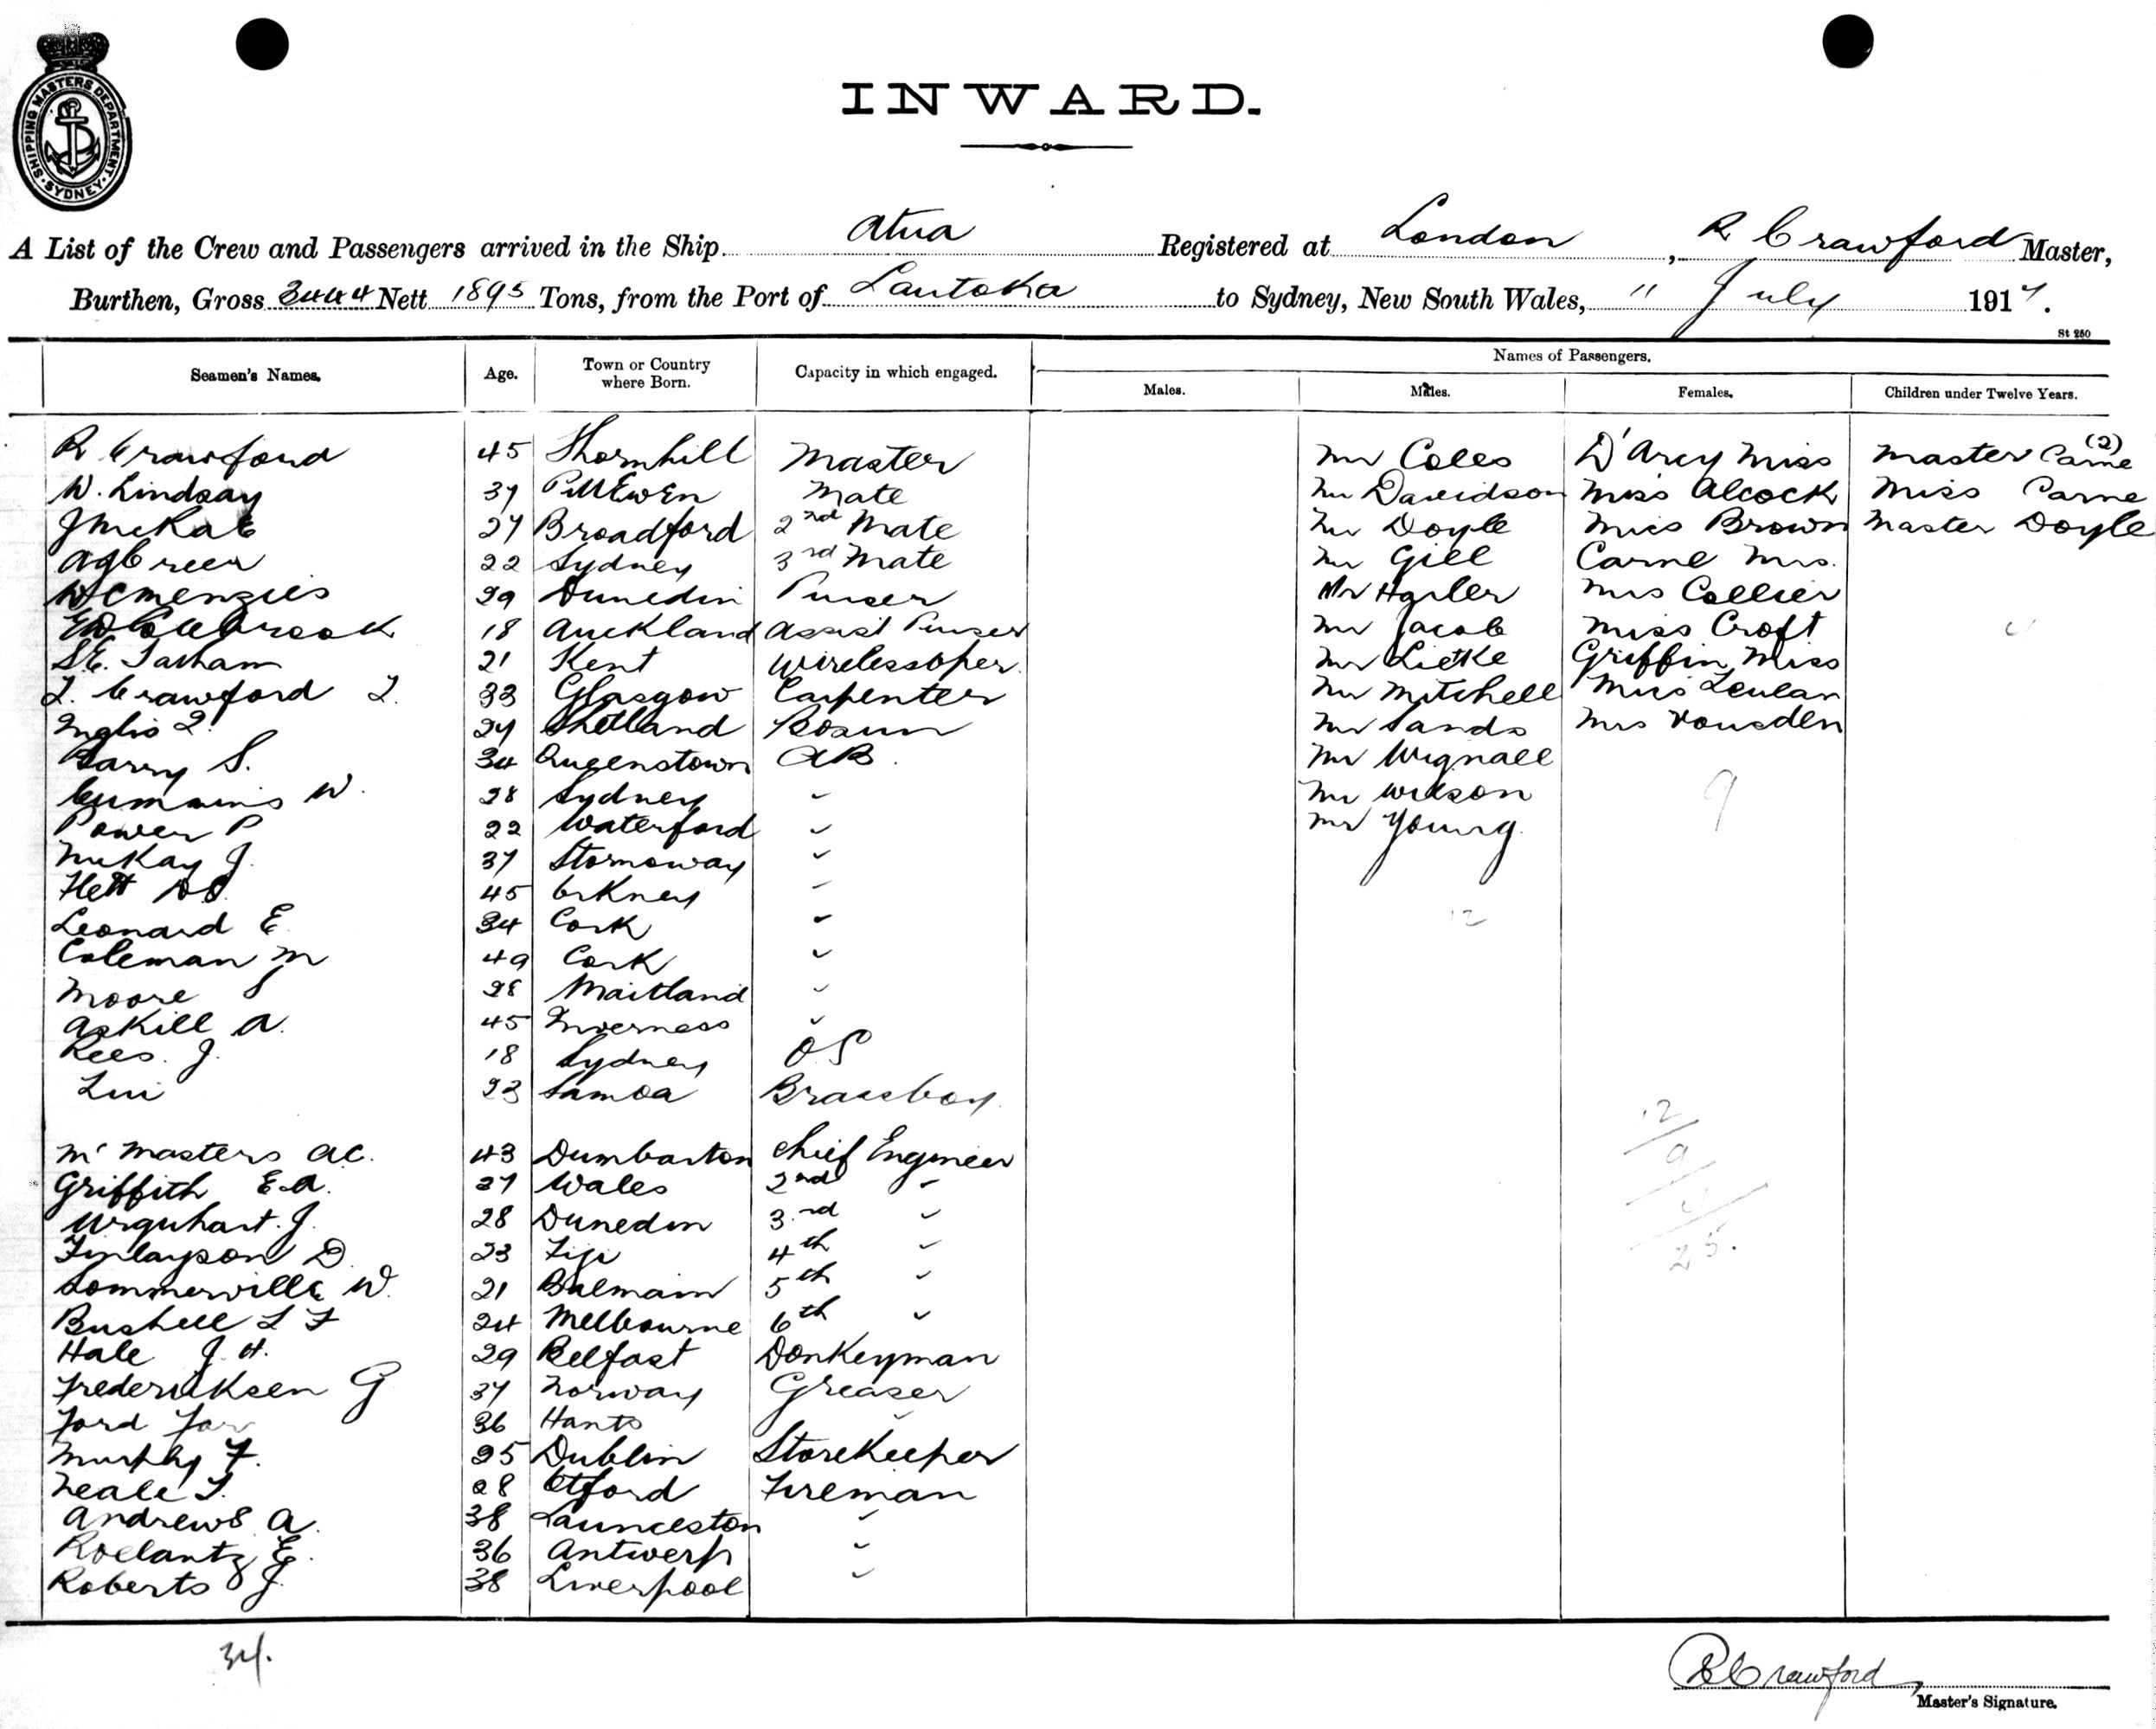 SHIPPING MASTERS DEPARTMENT. SYDNEY
INWARD.
A List of the Crew and Passengers arrived in the Ship Atua Registered at London, R Crawford Master,
Burthen, Gross 3444 Nett 1895 Tons, from the Port of Lautoka to Sydney, New South Wales, 11 July 1917.
St 250
Names of Passengers.
Seamen's Names. Age. Town or Country where Born. Capacity in which engaged. Males. Males. Females. Children under Twelve Years.
R Crawford 45 Thornhill Master Mr Coles D'Arcy Miss Master Carne (2)
W. Lindsay 37 Mate Mr Davidson Miss Alcock Miss Carne
J McRae 27 Broadford 2nd Mate Mr Doyle Miss Brown Master Doyle
A G Creer 22 Sydney 3rd Mate Mr Gill Carne Mrs.
W C Menzies 29 Dunedin Purser Mr Mrs Collier
18 Auckland Assist Purser Mr Jacob Miss Croft 4
S.E. Tatham 21 Kent Wireless oper. Mr Lietke Griffin Miss
T. Crawford T. 33 Glasgow Carpenter Mr Mitchell
Inglis 27 Shetland Bosun Mr Sands Mrs Vousden
Barry S. 34 Queenstown AB. Mr Wignall
Cummins W. 28 Sydney " Mr Wilson
Power P 22 Waterford " Mr Young. 9
McKay J. 37 Stornoway "
Flett 45 Orkney "
Leonard E. 34 Cork " 12
Coleman M 49 Cork "
Moore J 28 Maitland "
Askill A. 45 Inverness "
Rees. J. 18 Sydney OS
Lui 23 Samoa Brassboy.
McMasters A.C. 43 Dumbarton Chief Engineer 12
Griffith E.A. 27 Wales 2nd " 9
Urquhart. J. 28 Dunedin 3rd " 4
Finlayson D. 23 Fiji 4th " 25.
Sommerville W. 21 Balmain 5th "
Bushell L F 24 Melbourne 6th "
Hale J. H. 29 Belfast Donkeyman
Frederiksen G 37 Norway Greaser
Ford Jas 36 Hants "
Murphy F. 25 Dublin Storekeeper
Neale T. 28 Otford Fireman
Andrews A. 38 Launceston "
Roelantz E. 36 Antwerp "
Roberts J. 38 Liverpool "
34.
R Crawford
Master's Signature.